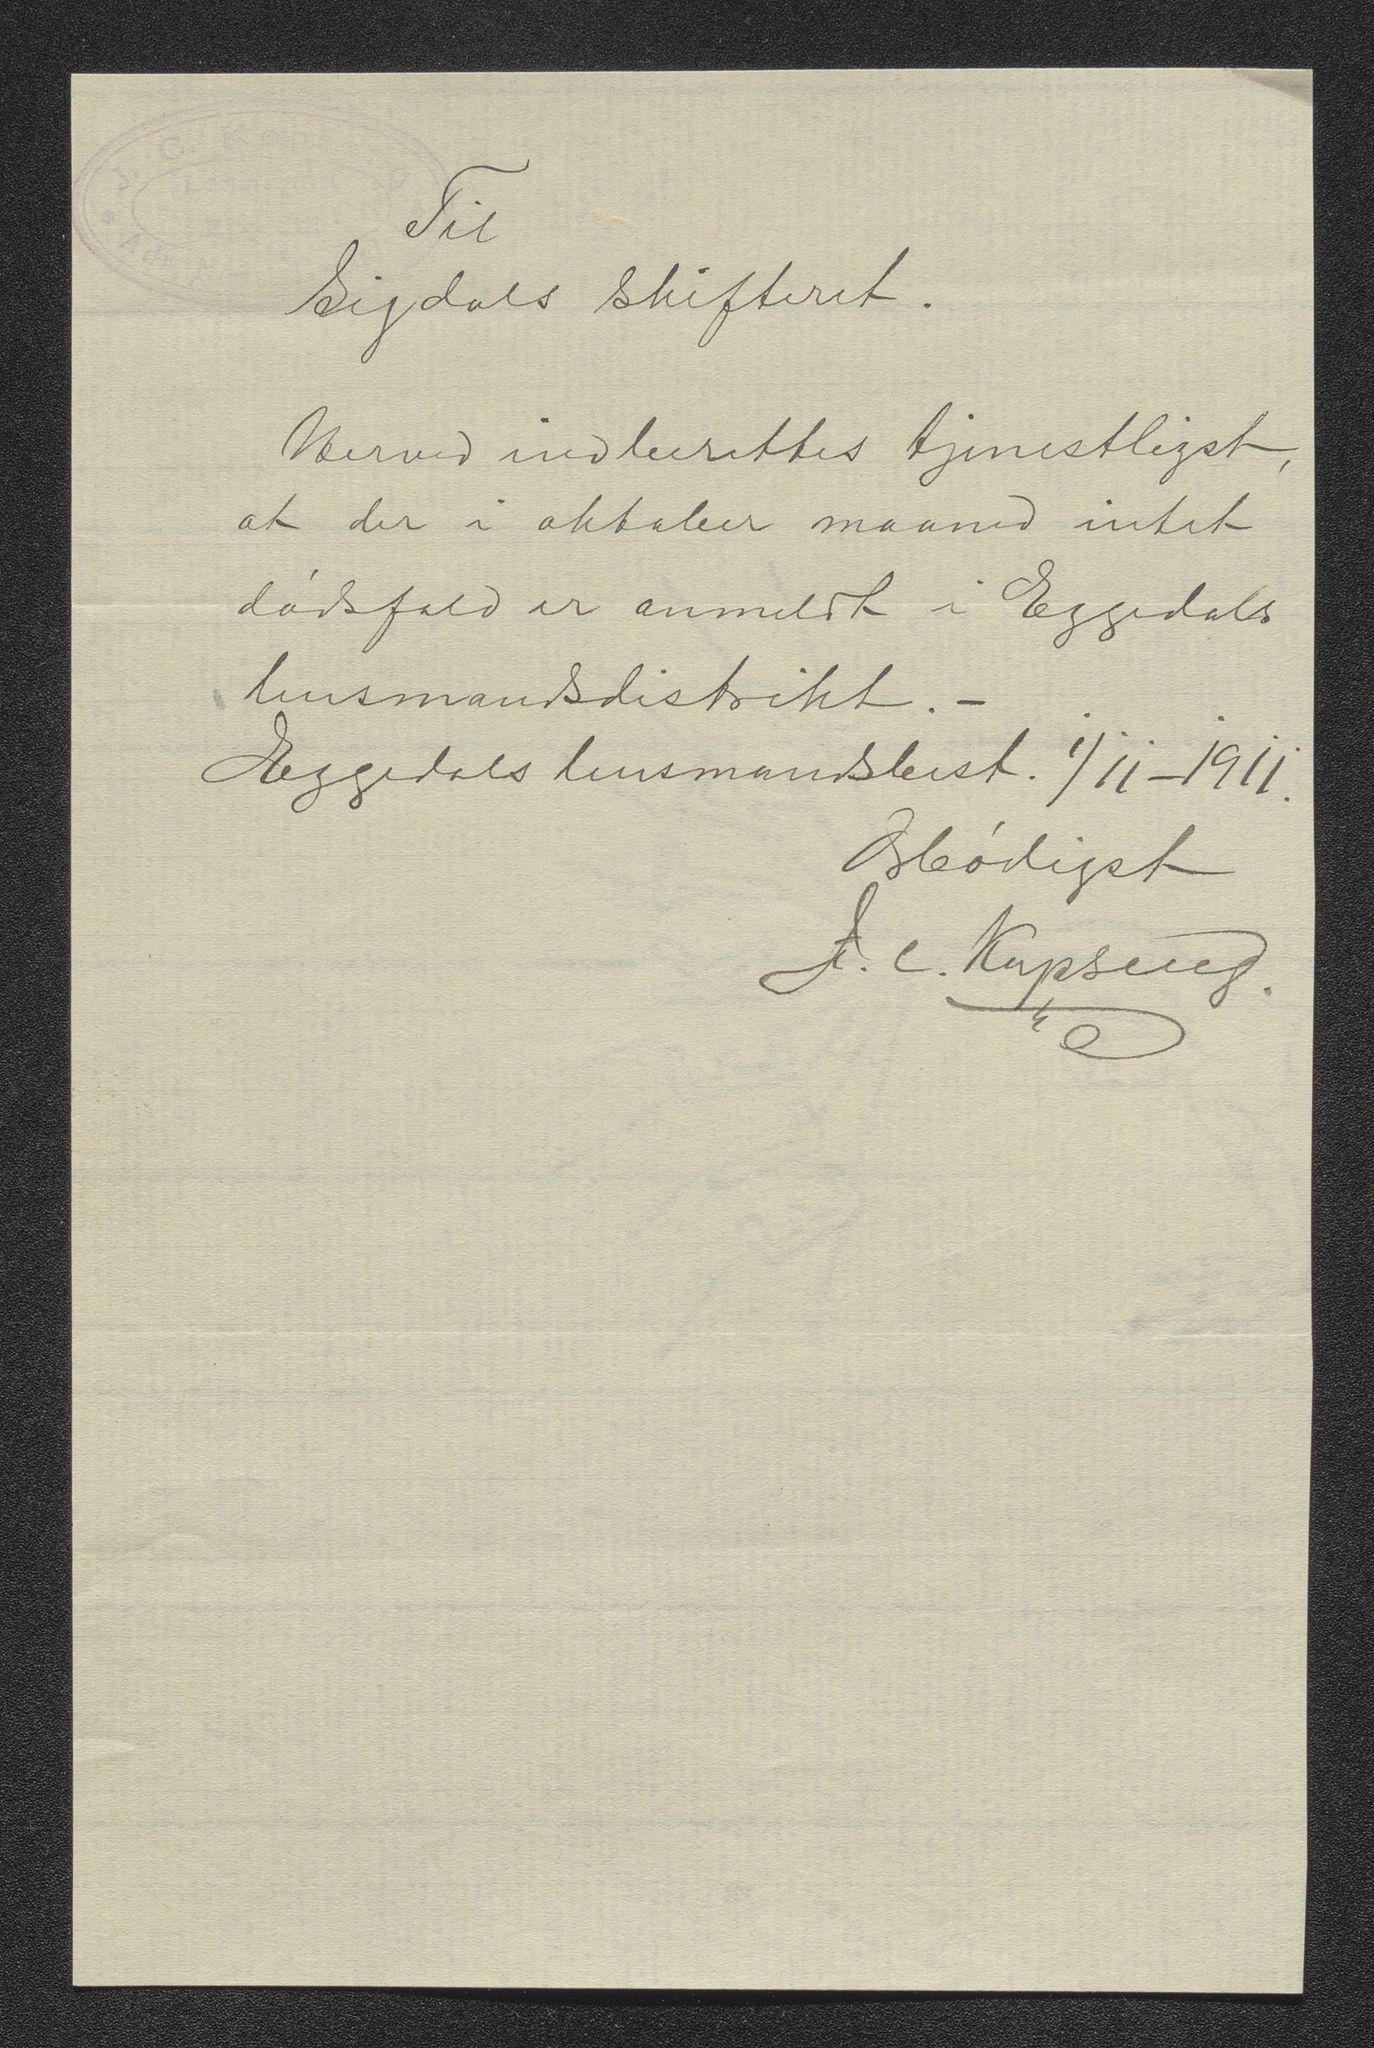 J. C. K
Til
Sigdals skifteret.
Herved indberettes tjenestligst,
at der i oktober maaned intet
dødsfald er anmeldt i Eggedals
lensmandsdistrikt. –
Eggedals lensmandsbest. 1/11–1911.
Ærbødigst
J. C. Kopseng.